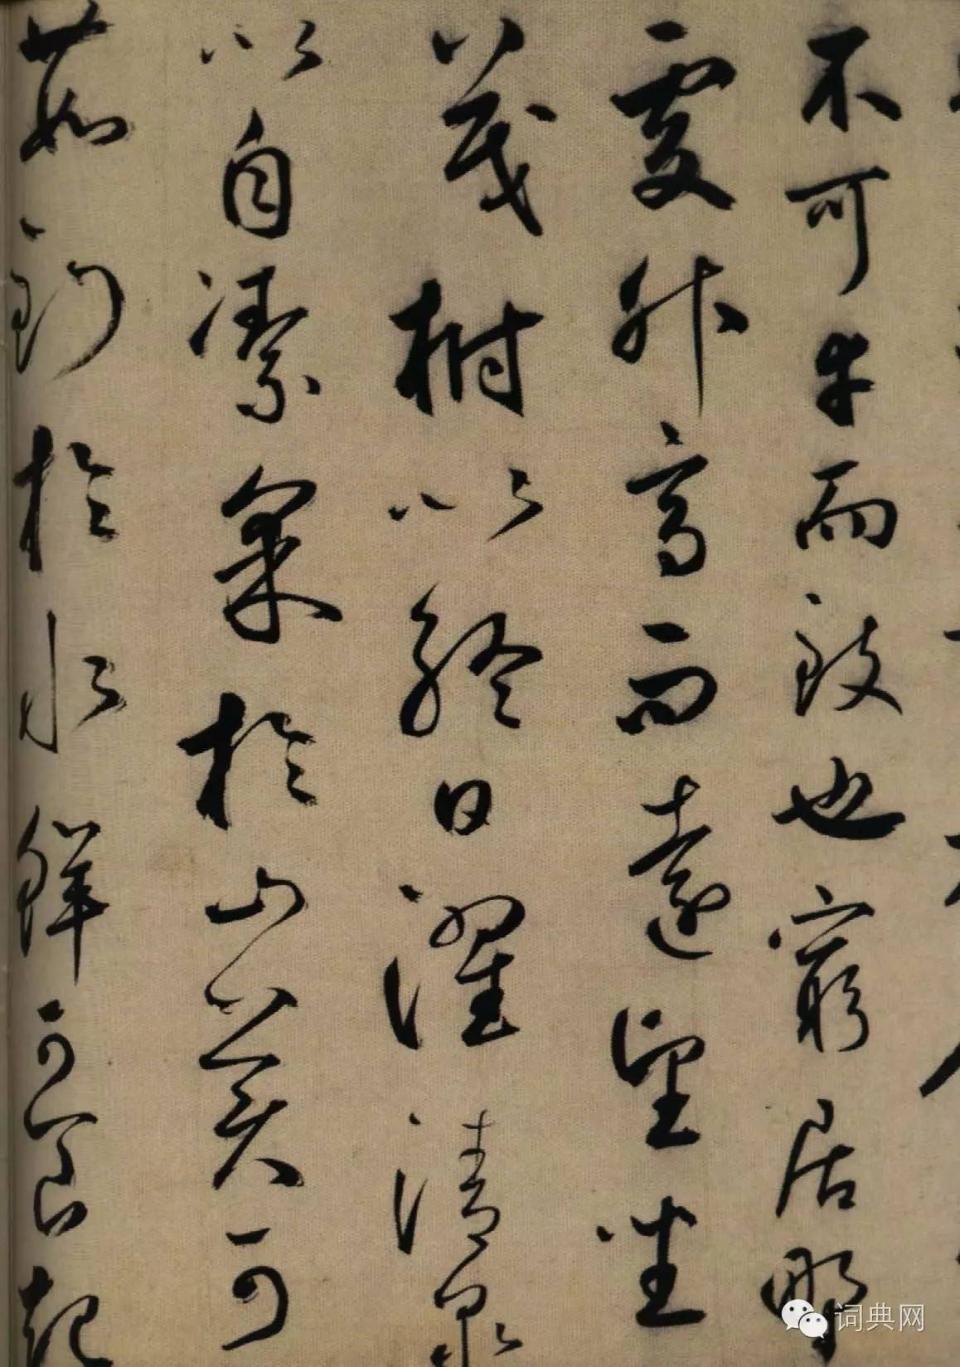 不可幸而致也窮居野
處升高而遠望坐
茂樹以終日濯清泉
以自潔采於山美可
茹釣於水鮮可食起
词典网